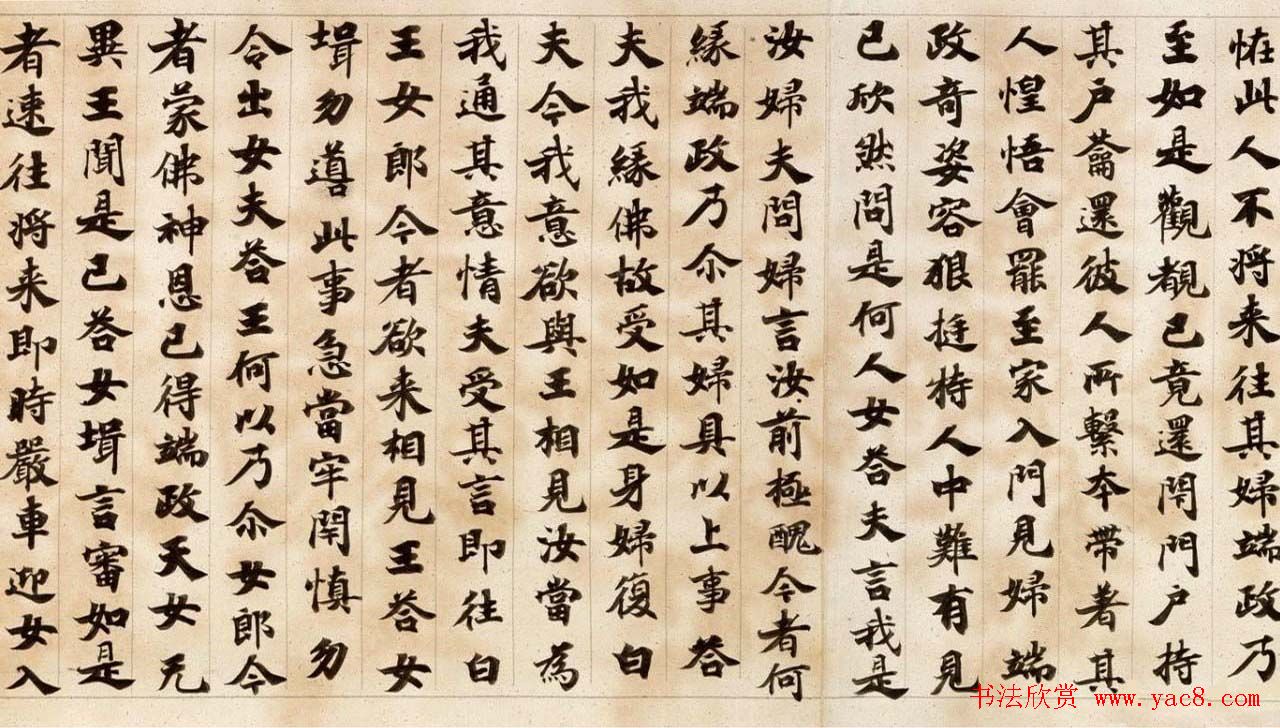 恠此人不將来往其婦端政乃
至如是觀覩已竟還閇門户持
其户蘥還彼人所繫本帶著其
人惶悟會罷至家入門見婦端
政奇姿容狠挺特人中難有見
已欣然問是何人女荅夫言我是
汝婦夫問婦言汝前極醜今者何
緣端政乃尒其婦具以上事荅
夫我緣佛故受如是身婦復白
夫今我意欲與王相見汝當為
我通其意情夫受其言即往白
王女郎今者欲来相見王荅女
壻勿導此事急當牢閇慎勿
令出女夫荅王何以乃尒女郎今
者蒙佛神恩已得端政天女无
異王聞是已荅女壻言審如是
者速往將来即時嚴車迎女入
书法欣赏 www.yac8.com